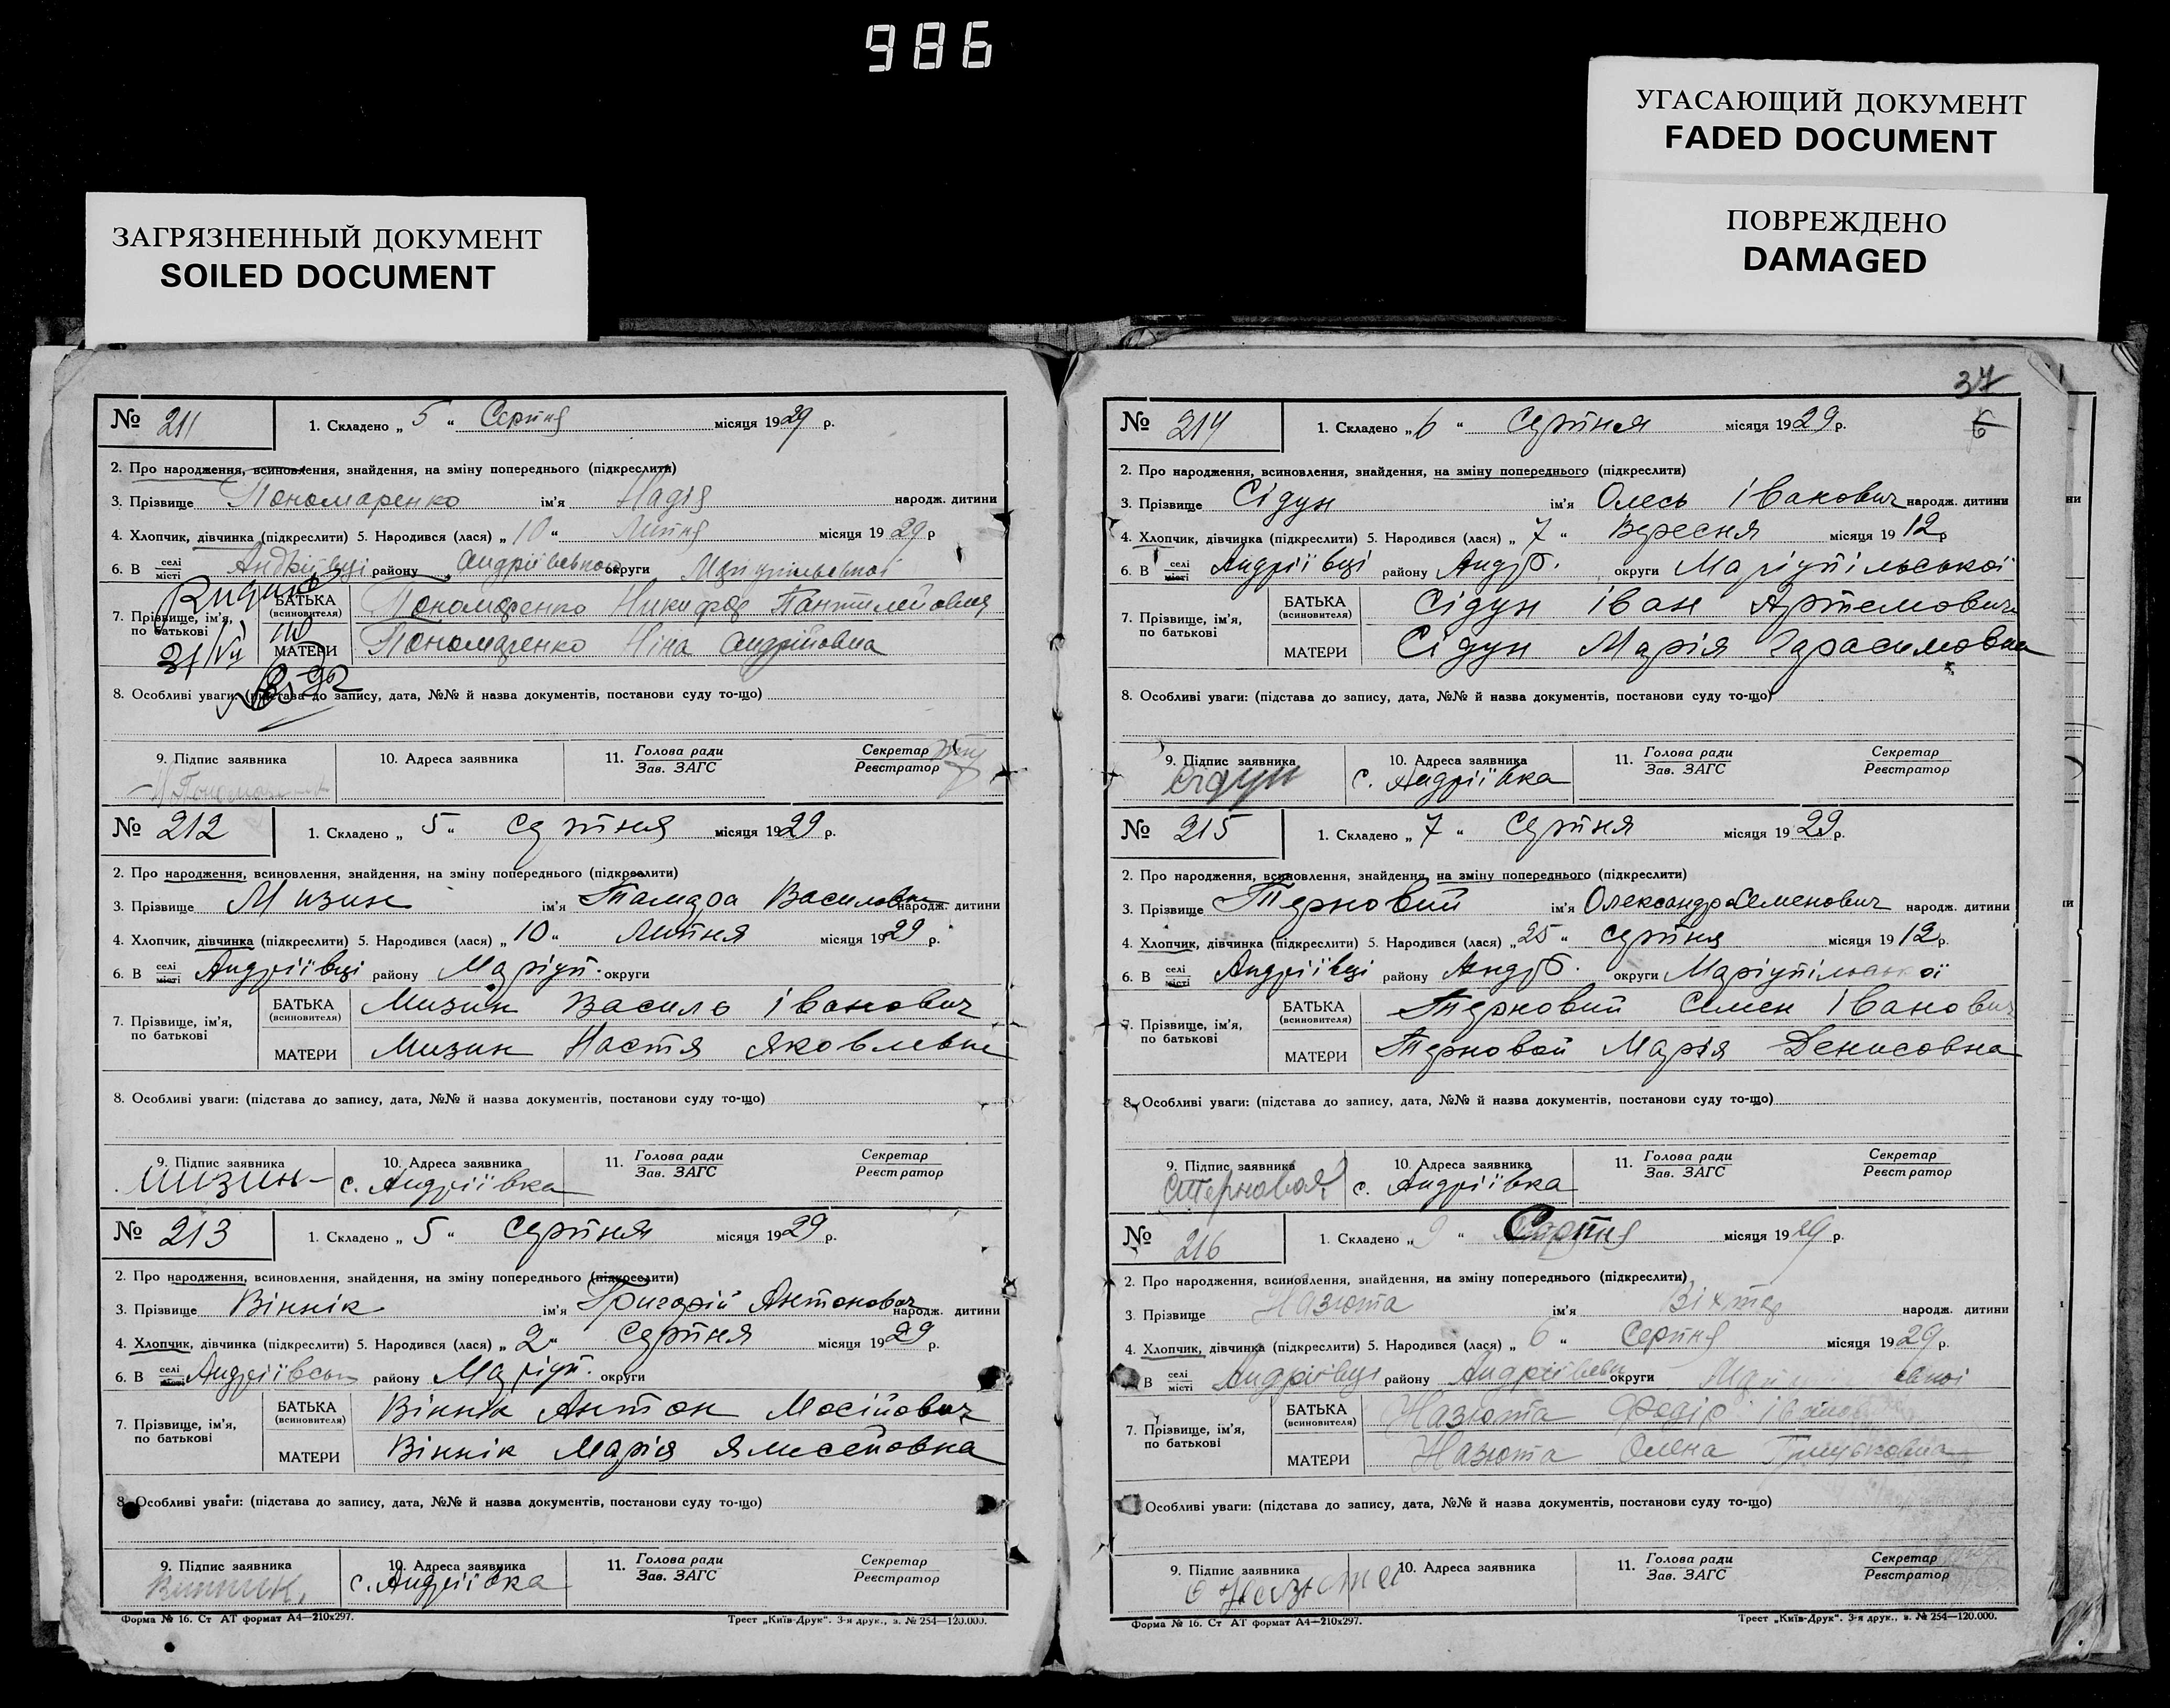 986
УГАСАЮЩИЙ ДОКУМЕНТ
FADED DOCUMENT
ПОВРЕЖДЕНО
DAMAGED
ЗАГРЯЗНЕННЫЙ ДОКУМЕНТ
SOILED DOCUMENT
№ 211 1. Складено „ 5 “ Серпня місяця 1929 р.
2. Про народження, всиновлення, знайдення, на зміну попереднього (підкреслити)
3. Прізвище Пономаренко ім'я Надія народж. дитини
4. Хлопчик, дівчинка (підкреслити) 5. Народився (лася) „ 10 “ Липня місяця 1929 р
6. В селі місті Андріївці району Андріївської округи Маріупільської
7. Прізвище, ім'я, по батькові
БАТЬКА (всиновителя) Пономаренко Никифор Пантилейович
МАТЕРИ Пономаренко Ніна Андрійовна
8. Особливі уваги: (підстава до запису, дата, №№ й назва документів, постанови суду то-що)
9. Підпис заявника 10. Адреса заявника 11. Голова ради Зав. ЗАГС Секретар Реєстратор
№ 212 1. Складено „ 5 “ Серпня місяця 1929 р.
2. Про народження, всиновлення, знайдення, на зміну попереднього (підкреслити)
3. Прізвище Мизин ім'я Тамара Василовна народж. дитини
4. Хлопчик, дівчинка (підкреслити) 5. Народився (лася) „ 10 “ Липня місяця 1929 р.
6. В селі місті Андріївці району Маріуп. округи
7. Прізвище, ім'я, по батькові
БАТЬКА (всиновителя) Мизин Василь Іванович
МАТЕРИ Мизин Настя Яковлевна
8. Особливі уваги: (підстава до запису, дата, №№ й назва документів, постанови суду то-що)
9. Підпис заявника 10. Адреса заявника 11. Голова ради Зав. ЗАГС Секретар Реєстратор
Мизин с. Андріївка
№ 213 1. Складено „ 5 “ Серпня місяця 1929 р.
2. Про народження, всиновлення, знайдення, на зміну попереднього (підкреслити)
3. Прізвище Віннік ім'я Григорій Антонович народж. дитини
4. Хлопчик, дівчинка (підкреслити) 5. Народився (лася) „ 2 “ Серпня місяця 1929 р.
6. В селі місті району Маріуп. округи
7. Прізвище, ім'я, по батькові
БАТЬКА (всиновителя) Віннік Антон Мосійович
МАТЕРИ Віннік Марія
8. Особливі уваги: (підстава до запису, дата, №№ й назва документів, постанови суду то-що)
9. Підпис заявника 10. Адреса заявника 11. Голова ради Зав. ЗАГС Секретар Реєстратор
с. Андріївка
Форма № 16. Ст АТ формат А4—210х297. Трест „Київ-Друк“. 3-я друк., з. № 254—120.000.
37
6
№ 214 1. Складено „ 6 “ Серпня місяця 1929 р.
2. Про народження, всиновлення, знайдення, на зміну попереднього (підкреслити)
3. Прізвище Сідун ім'я Олесь Іванович народж. дитини
4. Хлопчик, дівчинка (підкреслити) 5. Народився (лася) „ 7 “ Вересня місяця 1912 р
6. В селі місті Андріївці району округи Маріупільської
7. Прізвище, ім'я, по батькові
БАТЬКА (всиновителя) Сідун Іван Артемович
МАТЕРИ Сідун Марія Гарасимовна
8. Особливі уваги: (підстава до запису, дата, №№ й назва документів, постанови суду то-що)
9. Підпис заявника 10. Адреса заявника 11. Голова ради Зав. ЗАГС Секретар Реєстратор
Сідун с. Андріївка
№ 215 1. Складено „ 7 “ Серпня місяця 1929 р.
2. Про народження, всиновлення, знайдення, на зміну попереднього (підкреслити)
3. Прізвище Терновий ім'я Олександр Семенович народж. дитини
4. Хлопчик, дівчинка (підкреслити) 5. Народився (лася) „ 25 “ Серпня місяця 1912 р.
6. В селі місті Андріївці району округи Маріупільської
7. Прізвище, ім'я, по батькові
БАТЬКА (всиновителя) Терновий Семен Іванович
МАТЕРИ Терновой Марія Денисовна
8. Особливі уваги: (підстава до запису, дата, №№ й назва документів, постанови суду то-що)
9. Підпис заявника 10. Адреса заявника 11. Голова ради Зав. ЗАГС Секретар Реєстратор
с. Андріївка
№ 216 1. Складено „ 9 “ Серпня місяця 1929 р.
2. Про народження, всиновлення, знайдення, на зміну попереднього (підкреслити)
3. Прізвище Назюта ім'я Віхтор народж. дитини
4. Хлопчик, дівчинка (підкреслити) 5. Народився (лася) „ 6 “ Серпня місяця 1929 р.
6. В селі місті Андріївці району округи
7. Прізвище, ім'я, по батькові
БАТЬКА (всиновителя) Назюта Федір
МАТЕРИ Назюта Олена Грицьковна
8. Особливі уваги: (підстава до запису, дата, №№ й назва документів, постанови суду то-що)
9. Підпис заявника 10. Адреса заявника 11. Голова ради Зав. ЗАГС Секретар Реєстратор
Форма № 16. Ст АТ формат А4—210х297. Трест „Київ-Друк“. 3-я друк., з. № 254—120.000.